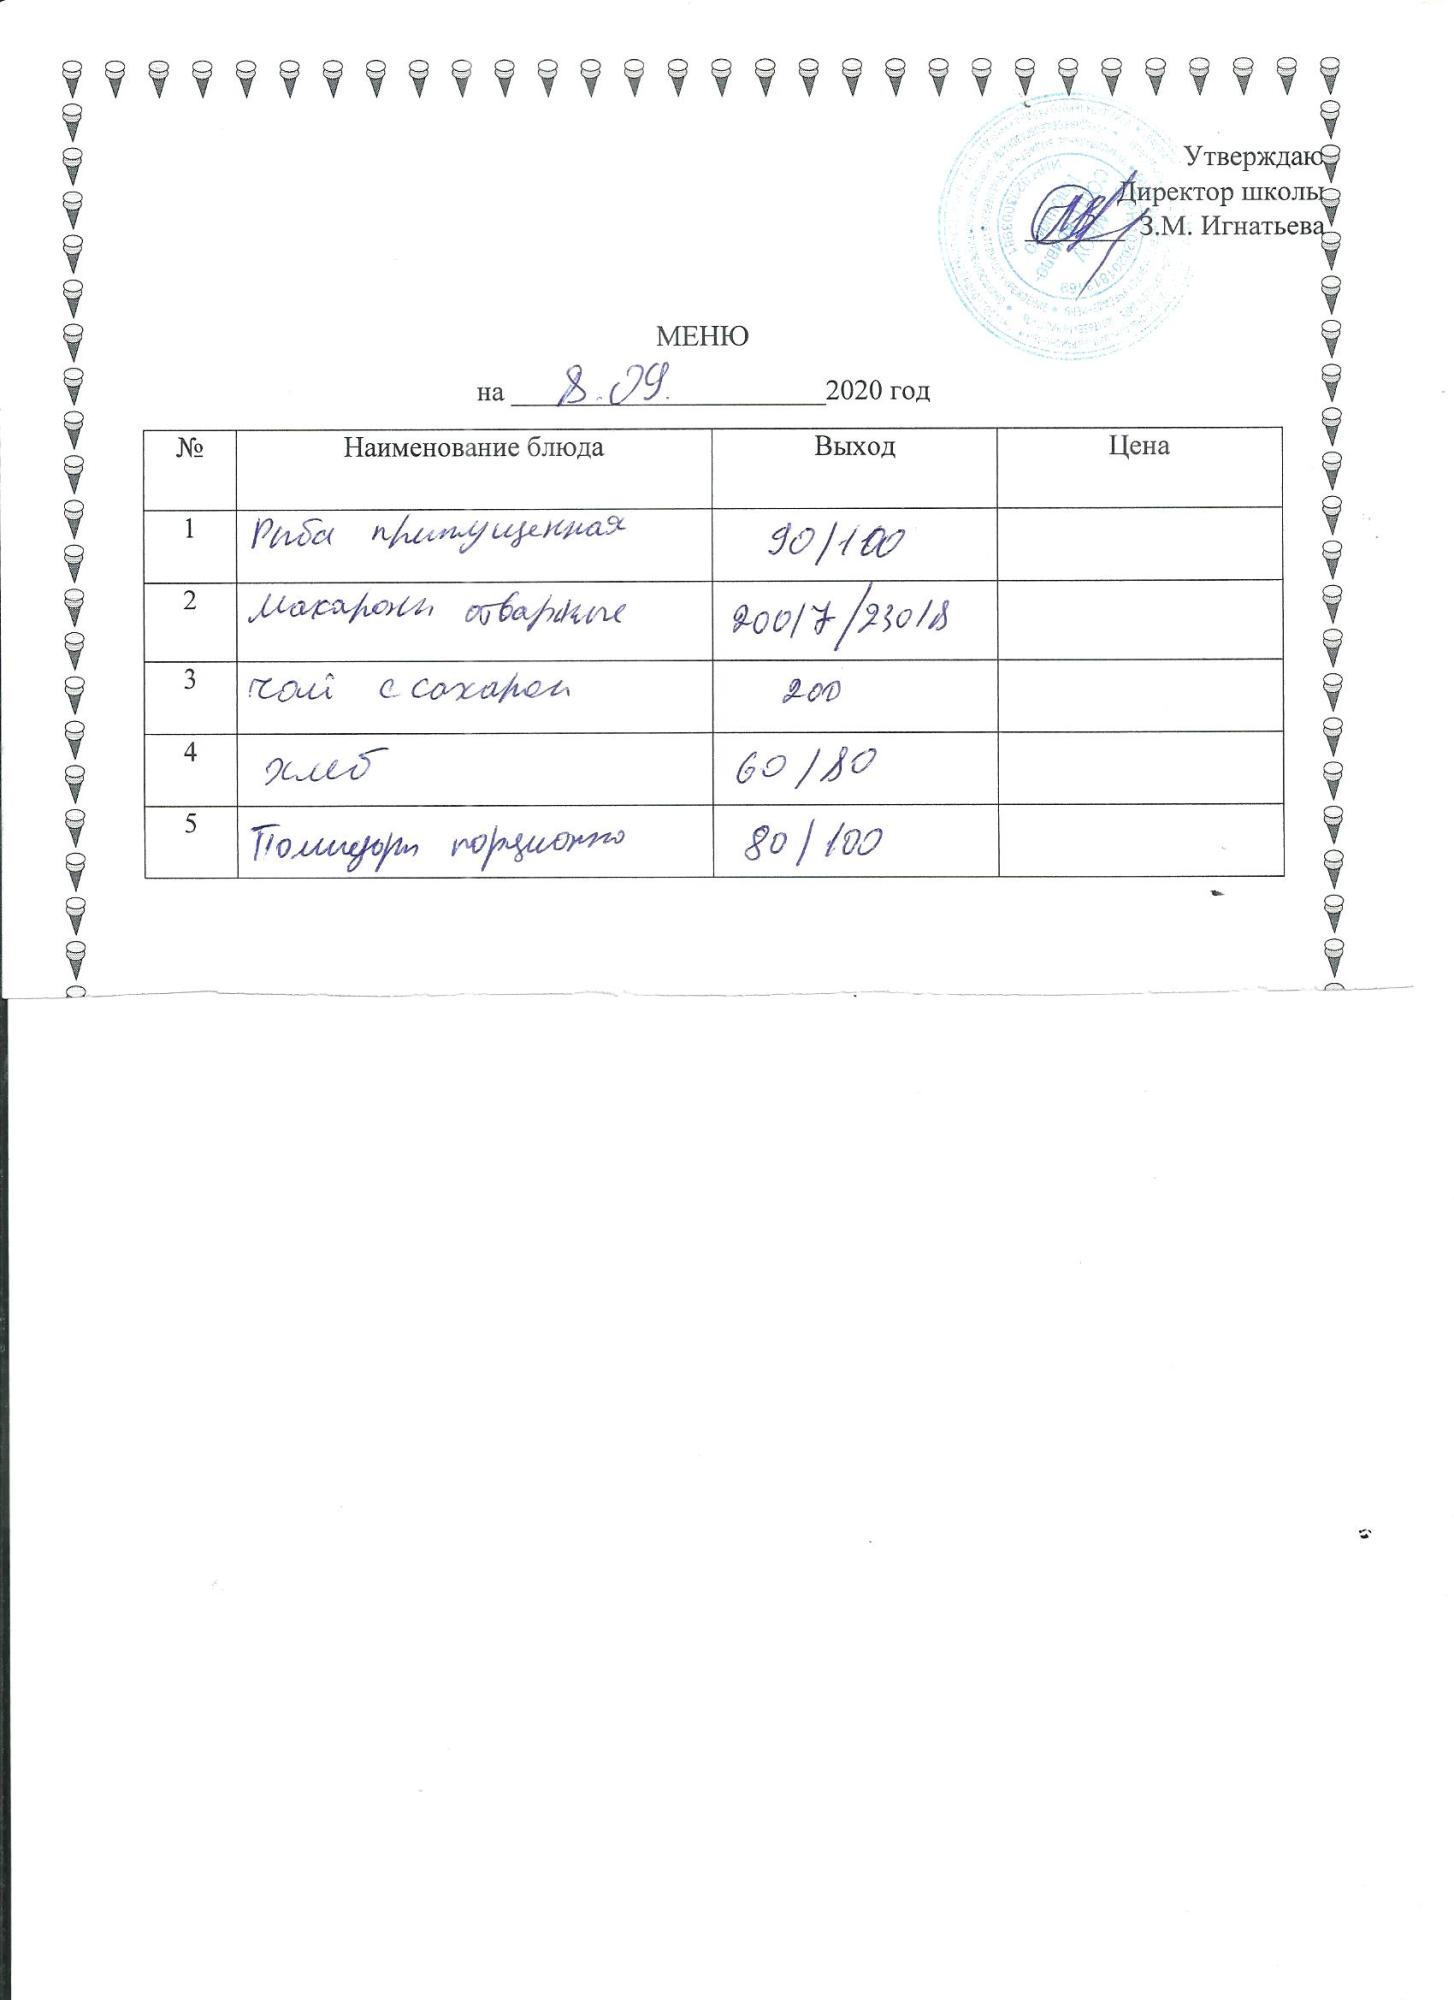 Утверждаю
Директор школы
З.М. Игнатьева
МЕНЮ
на 8.09. 2020 год
№ Наименование блюда Выход Цена
1 Рыба припущенная 90/100
2 Макароны отварные 200/7/230/8
3 чай с сахаром 200
4 хлеб 60/80
5 Помидоры порционно 80/100